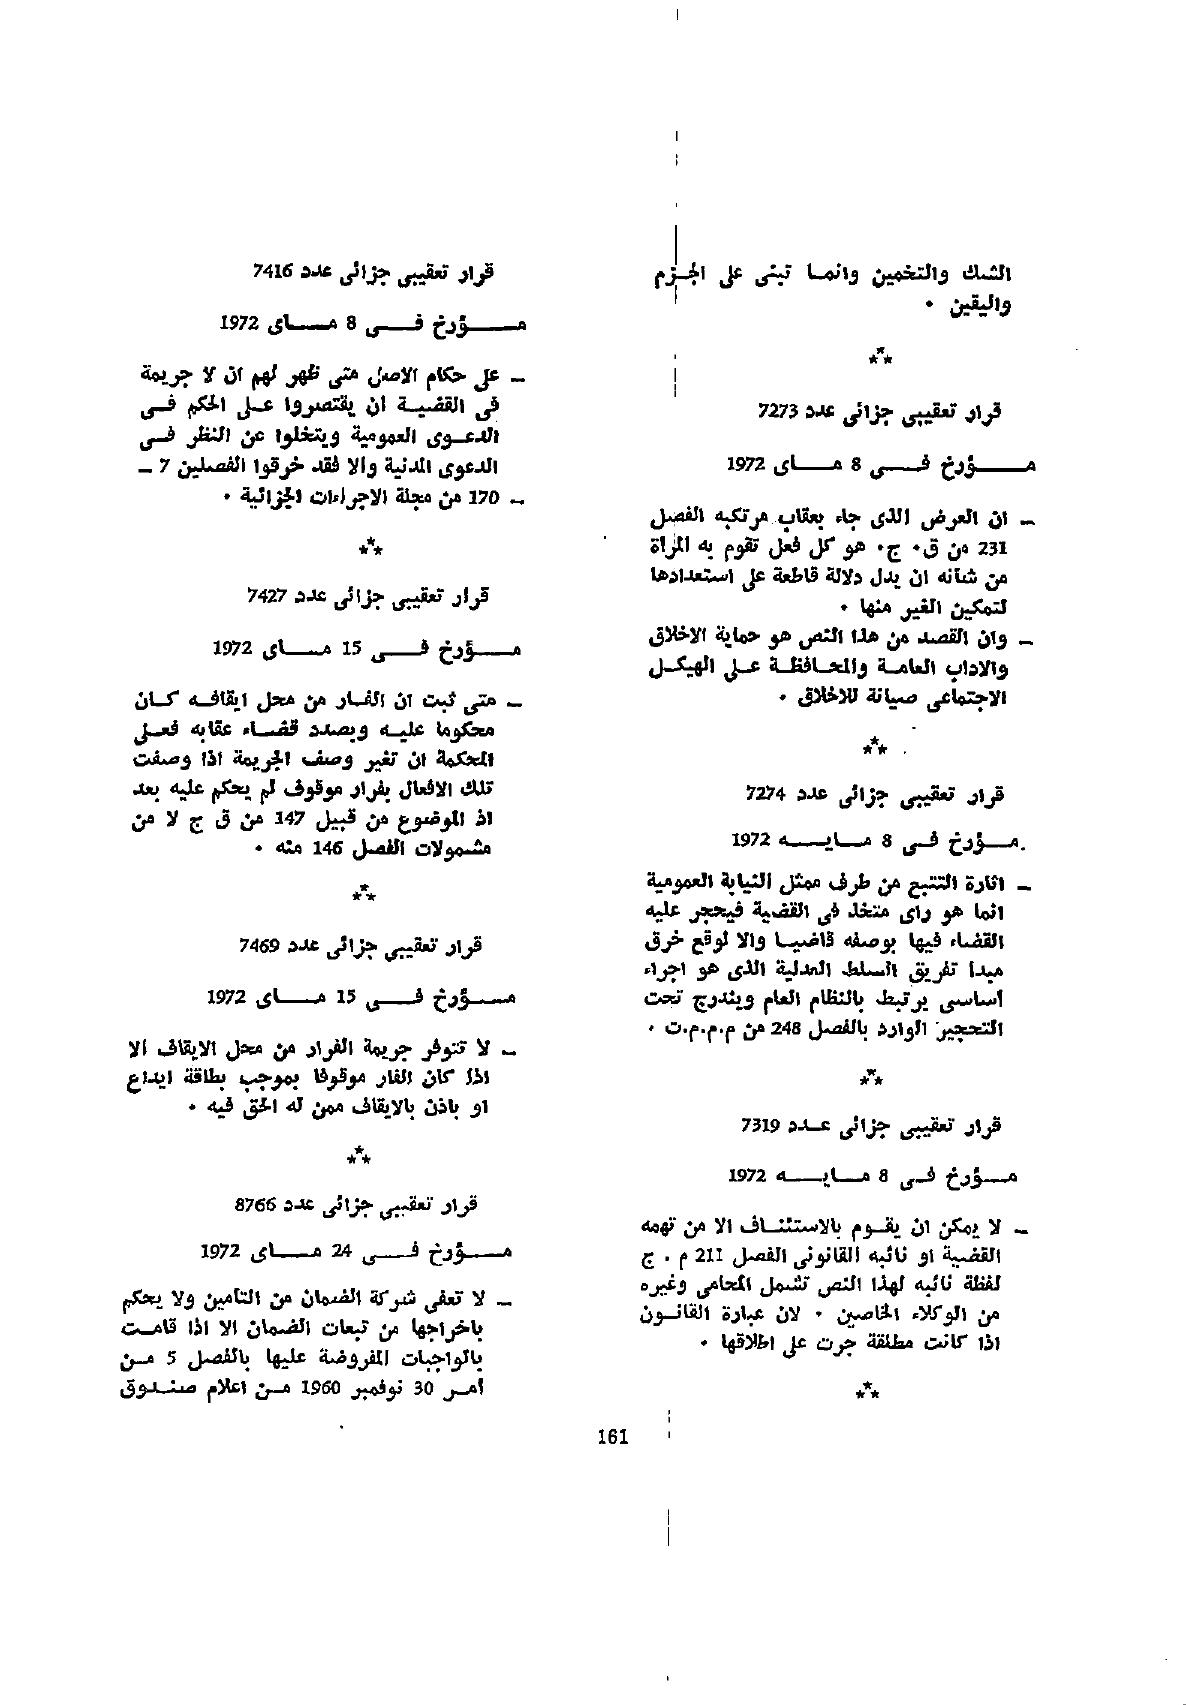 الشك والتخمين وانما تبنى على الجزم
واليقين ٠
***
قرار تعقيبى جزائى عدد 7273
مؤرخ فى 8 ماى 1972
– ان العرض الذى جاء بعقاب مرتكبه الفصل
231 من ق٠ ج٠ هو كل فعل تقوم به المرأة
من شأنه ان يدل دلالة قاطعة على استعدادها
لتمكين الغير منها ٠
– وان القصد من هذا النص هو حماية الاخلاق
والاداب العامة والمحافظة على الهيكل
الاجتماعى صيانة للاخلاق ٠
***
قرار تعقيبى جزائى عدد 7274
مؤرخ فى 8 مايه 1972
– اثارة التتبع من طرف ممثل النيابة العمومية
انما هو راى متخذ فى القضية فيحجر عليه
القضاء فيها بوصفه قاضيا والا لوقع خرق
مبدا تفريق السلط العدلية الذى هو اجراء
أساسى يرتبط بالنظام العام ويندرج تحت
التحجير الوارد بالفصل 248 من م.م.م.ت ٠
***
قرار تعقيبى جزائى عدد 7319
مؤرخ فى 8 مايه 1972
– لا يمكن ان يقوم بالاستئناف الا من تهمه
القضية او نائبه القانونى الفصل 211 م . ج
لفظة نائبه لهذا النص تشمل المحامى وغيره
من الوكلاء الخاصين ٠ لان عبارة القانون
اذا كانت مطلقة جرت على اطلاقها ٠
***
قرار تعقيبى جزائى عدد 7416
مؤرخ فى 8 ماى 1972
– على حكام الاصل متى ظهر لهم ان لا جريمة
فى القضية ان يقتصروا على الحكم فى
الدعوى العمومية ويتخلوا عن النظر فى
الدعوى المدنية والا فقد خرقوا الفصلين 7 –
– 170 من مجلة الاجراءات الجزائية ٠
***
قرار تعقيبى جزائى عدد 7427
مؤرخ فى 15 ماى 1972
– متى ثبت ان الفار من محل ايقافه كان
محكوما عليه وبصدد قضاء عقابه فعلى
المحكمة ان تغير وصف الجريمة اذا وصفت
تلك الافعال بفرار موقوف لم يحكم عليه بعد
اذ الموضوع من قبيل 147 من ق ج لا من
مشمولات الفصل 146 منه ٠
***
قرار تعقيبى جزائى عدد 7469
مؤرخ فى 15 ماى 1972
– لا تتوفر جريمة الفرار من محل الايقاف الا
اذا كان الفار موقوفا بموجب بطاقة ايداع
او باذن بالايقاف ممن له الحق فيه ٠
***
قرار تعقيبى جزائى عدد 8766
مؤرخ فى 24 ماى 1972
– لا تعفى شركة الضمان من التامين ولا يحكم
باخراجها من تبعات الضمان الا اذا قامت
بالواجبات المفروضة عليها بالفصل 5 من
أمر 30 نوفمبر 1960 من اعلام صندوق
161